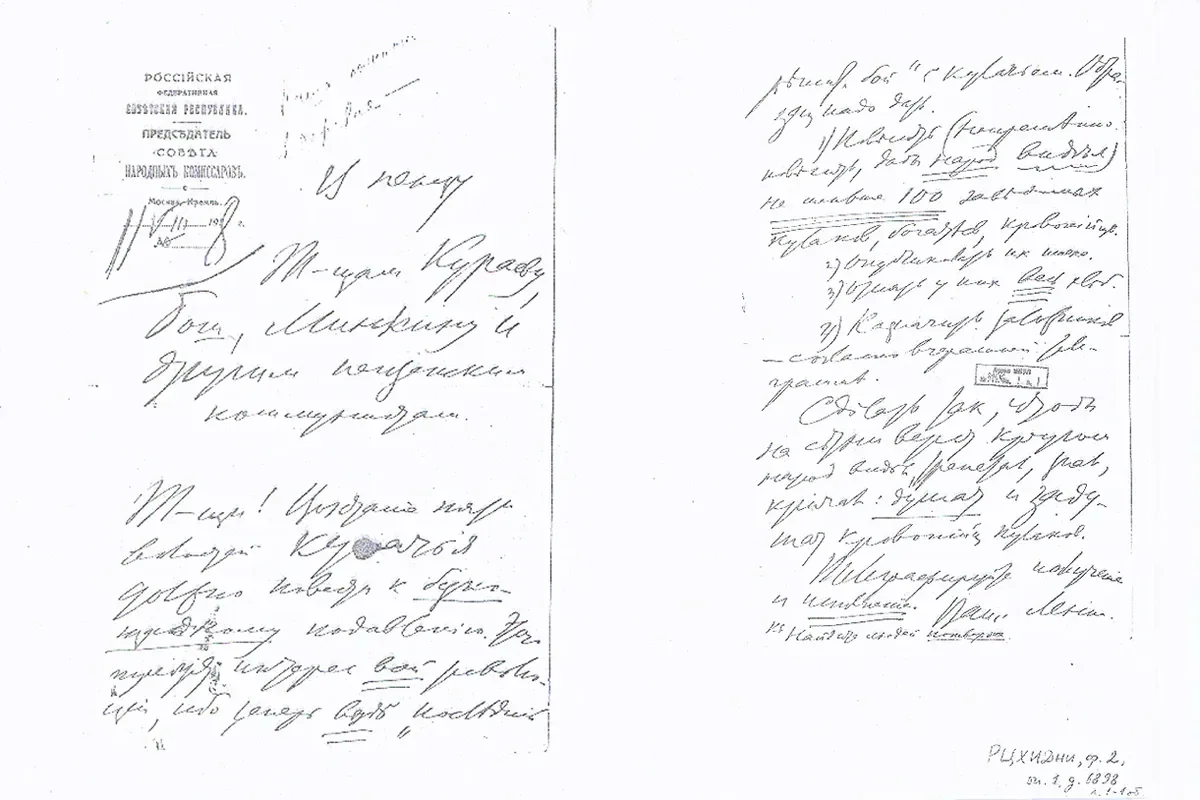 РОССІЙСКАЯ
ФЕДЕРАТИВНАЯ
СОВѢТСКАЯ РЕСПУБЛИКА.
ПРЕДСѢДАТЕЛЬ
СОВѢТА
НАРОДНЫХЪ КОМИССАРОВЪ.
Москва, Кремль.
11/VIII 1918 г.
№
В Пензу
Т-щам Кураеву,
Бош, Минкину и
другим пензенским
коммунистам.
Т-щи! Восстание пяти
волостей кулачья
должно повести к беспо-
щадному подавлению. Этого
требует интерес всей револю-
ции, ибо теперь везде „последний
решит. бой" с кулачьем. Обра-
зец надо дать.
1) Повесить (непременно
повесить, дабы народ видел)
не меньше 100 заведомых
кулаков, богатеев, кровопийц.
2) Опубликовать их имена.
3) Отнять у них весь хлеб.
4) Назначить заложников
— согласно вчерашней теле-
грамме.
Сделать так, чтобы
на сотни верст кругом
народ видел, трепетал, знал,
кричал: душат и заду-
шат кровопийц кулаков.
Телеграфируйте получение
и исполнение. Ваш Ленин.
Найдите людей потверже.
РЦХИДНИ, ф. 2,
оп. 1, д. 6898
л. 1-1 об